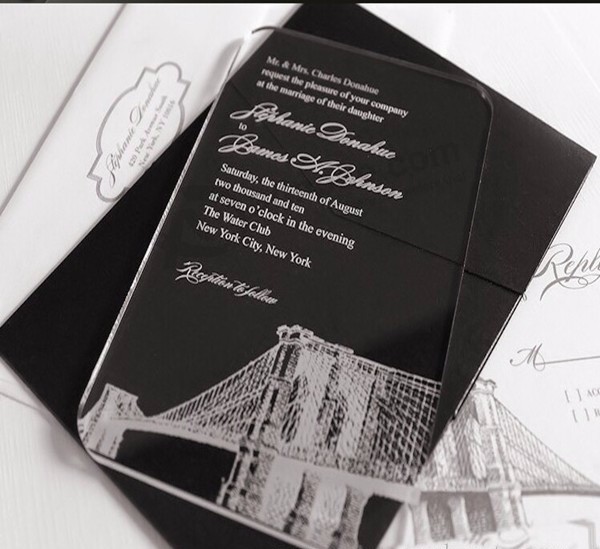 Mr. & Mrs. Charles Donahue
request the pleasure of your company
at the marriage of their daughter
Stephanie Donahue
to
James A. Johnson
Saturday, the thirteenth of August
two thousand and ten
at seven o'clock in the evening
The Water Club
New York City, New York
Reception to follow
Stephanie Donahue
420 Park Avenue South
New York, NY 10016
Repl
M
[ ] ACC
[ ]